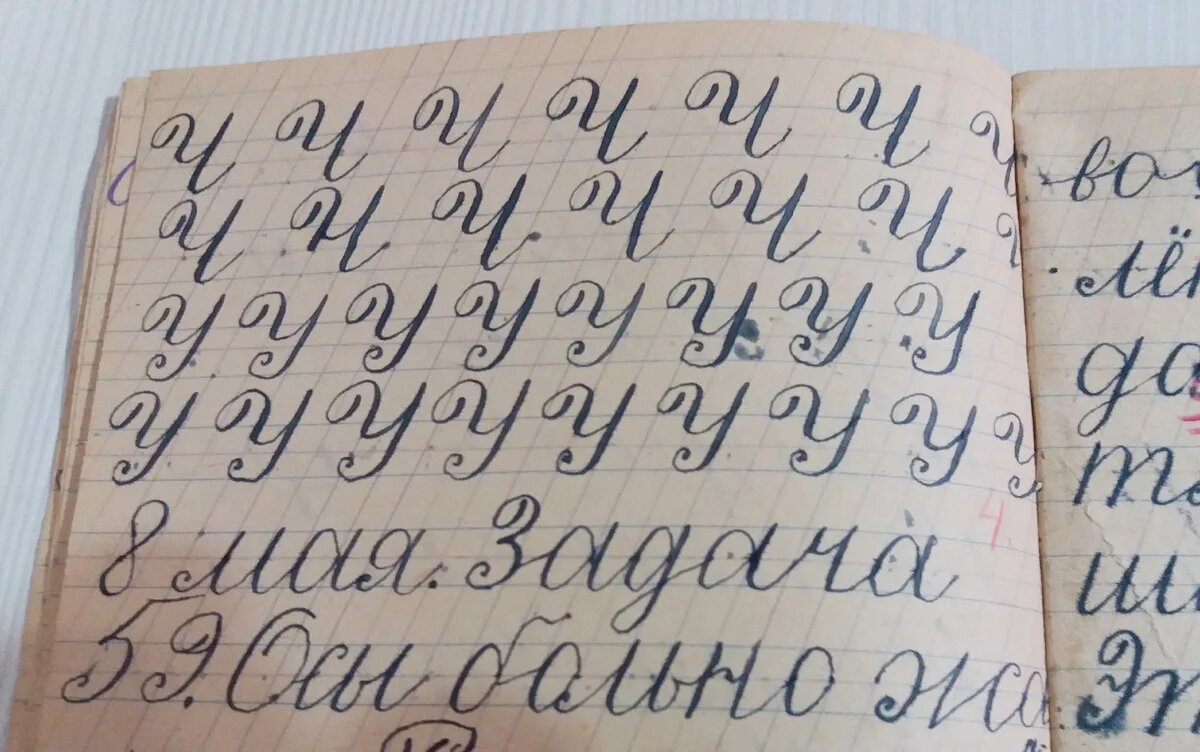 Ч Ч Ч Ч Ч Ч Ч
Ч Ч Ч Ч Ч Ч
У У У У У У У У
У У У У У У У У У
4.
8 мая. Задача
59. Осы больно жа
во
лё
да
Эт